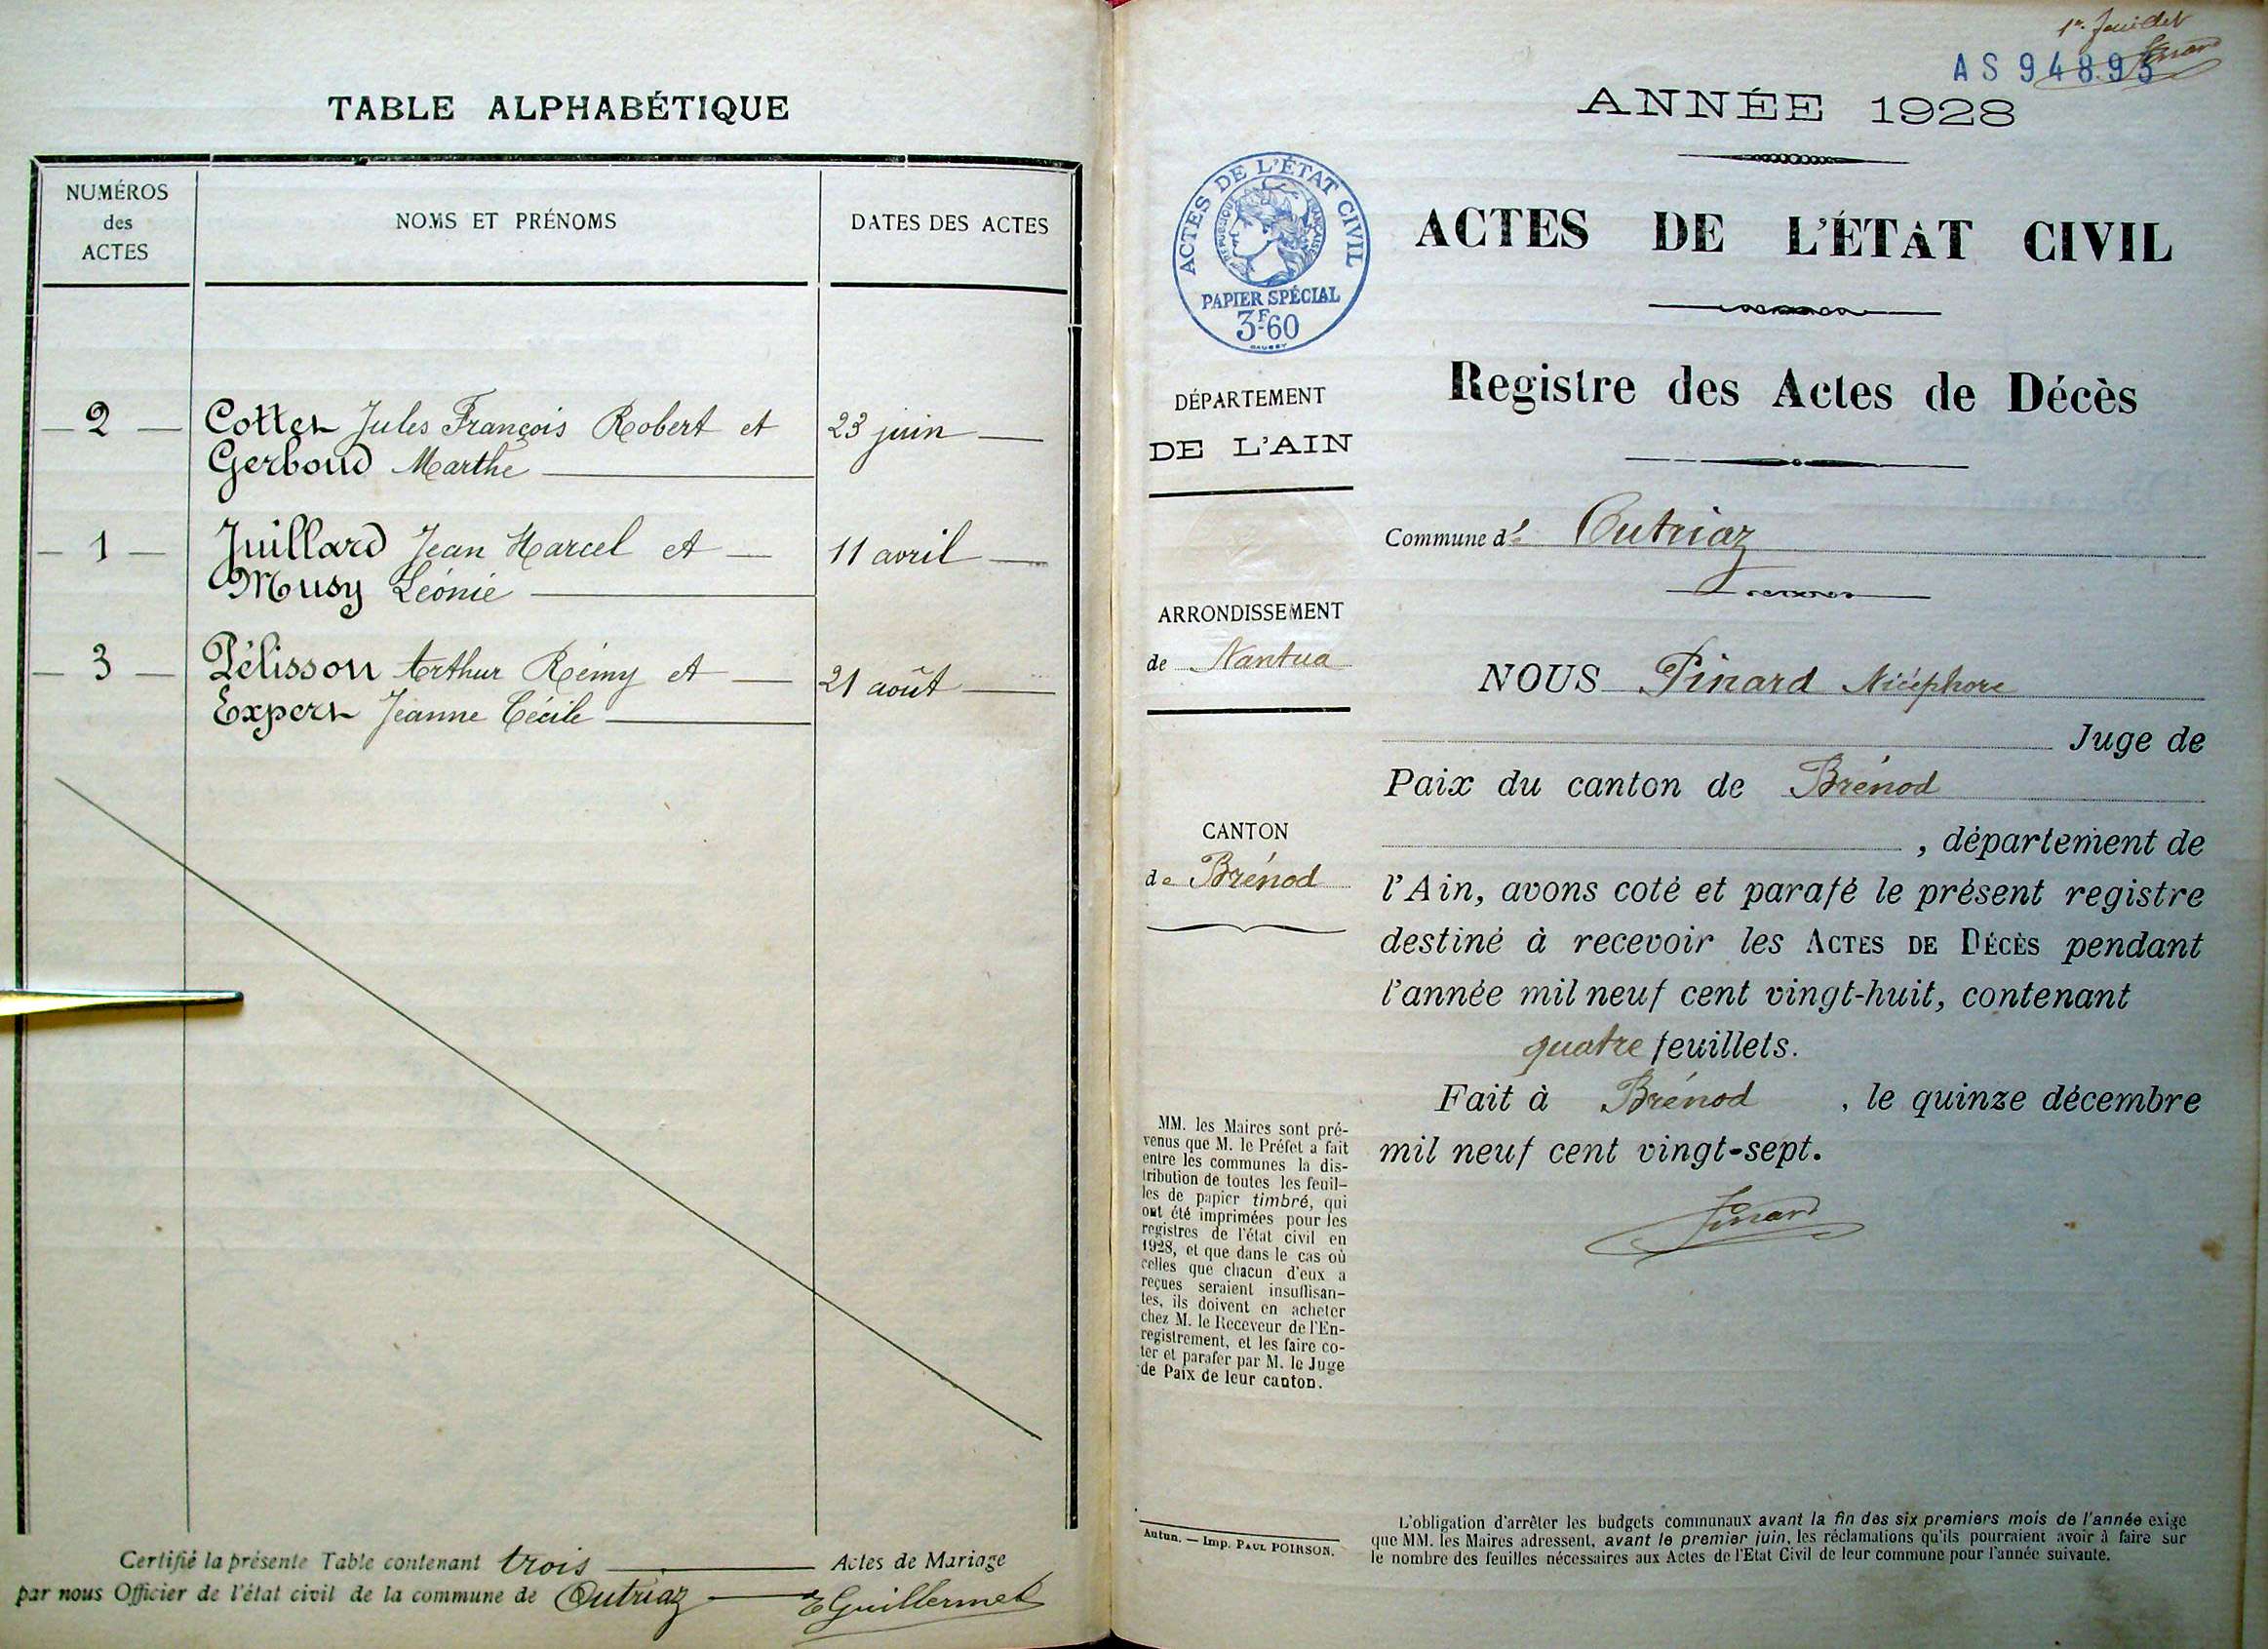 TABLE ALPHABÉTIQUE
NUMÉROS
des
ACTES
NOMS ET PRÉNOMS
DATES DES ACTES
2 Cottet Jules François Robert et 23 juin
Gerboud Marthe
1 Juillard Jean Marcel et 11 avril
Musy Léonie
3 Pélisson Arthur Rémy et 21 août
Expert Jeanne Cécile
Certifié la présente Table contenant trois Actes de Mariage
par nous Officier de l'état civil de la commune de Outriaz EGuillermet
1er feuillet
Pinard
AS 94893
ANNÉE 1928
ACTES DE L'ÉTAT CIVIL
RÉPUBLIQUE FRANÇAISE
PAPIER SPÉCIAL
3F60
ACTES DE L'ÉTAT CIVIL
Registre des Actes de Décès
DÉPARTEMENT
DE L'AIN
Commune d' Outriaz
ARRONDISSEMENT
de Nantua
NOUS Pinard Nicéphore
Juge de
Paix du canton de Brénod
CANTON
de Brénod
, département de
l'Ain, avons coté et parafé le présent registre
destiné à recevoir les ACTES DE DÉCÈS pendant
l'année mil neuf cent vingt-huit, contenant
quatre feuillets.
Fait à Brénod , le quinze décembre
mil neuf cent vingt-sept.
Pinard
MM. les Maires sont pré-
venus que M. le Préfet a fait
entre les communes la dis-
tribution de toutes les feuil-
les de papier timbré, qui
ont été imprimées pour les
registres de l'état civil en
1928, et que dans le cas où
celles que chacun d'eux a
reçues seraient insuffisan-
tes, ils doivent en acheter
chez M. le Receveur de l'En-
registrement, et les faire co-
ter et parafer par M. le Juge
de Paix de leur canton.
Autun. — Imp. PAUL POIRSON.
L'obligation d'arrêter les budgets communaux avant la fin des six premiers mois de l'année exige
que MM. les Maires adressent, avant le premier juin, les réclamations qu'ils pourraient avoir à faire sur
le nombre des feuilles nécessaires aux Actes de l'Etat Civil de leur commune pour l'année suivante.